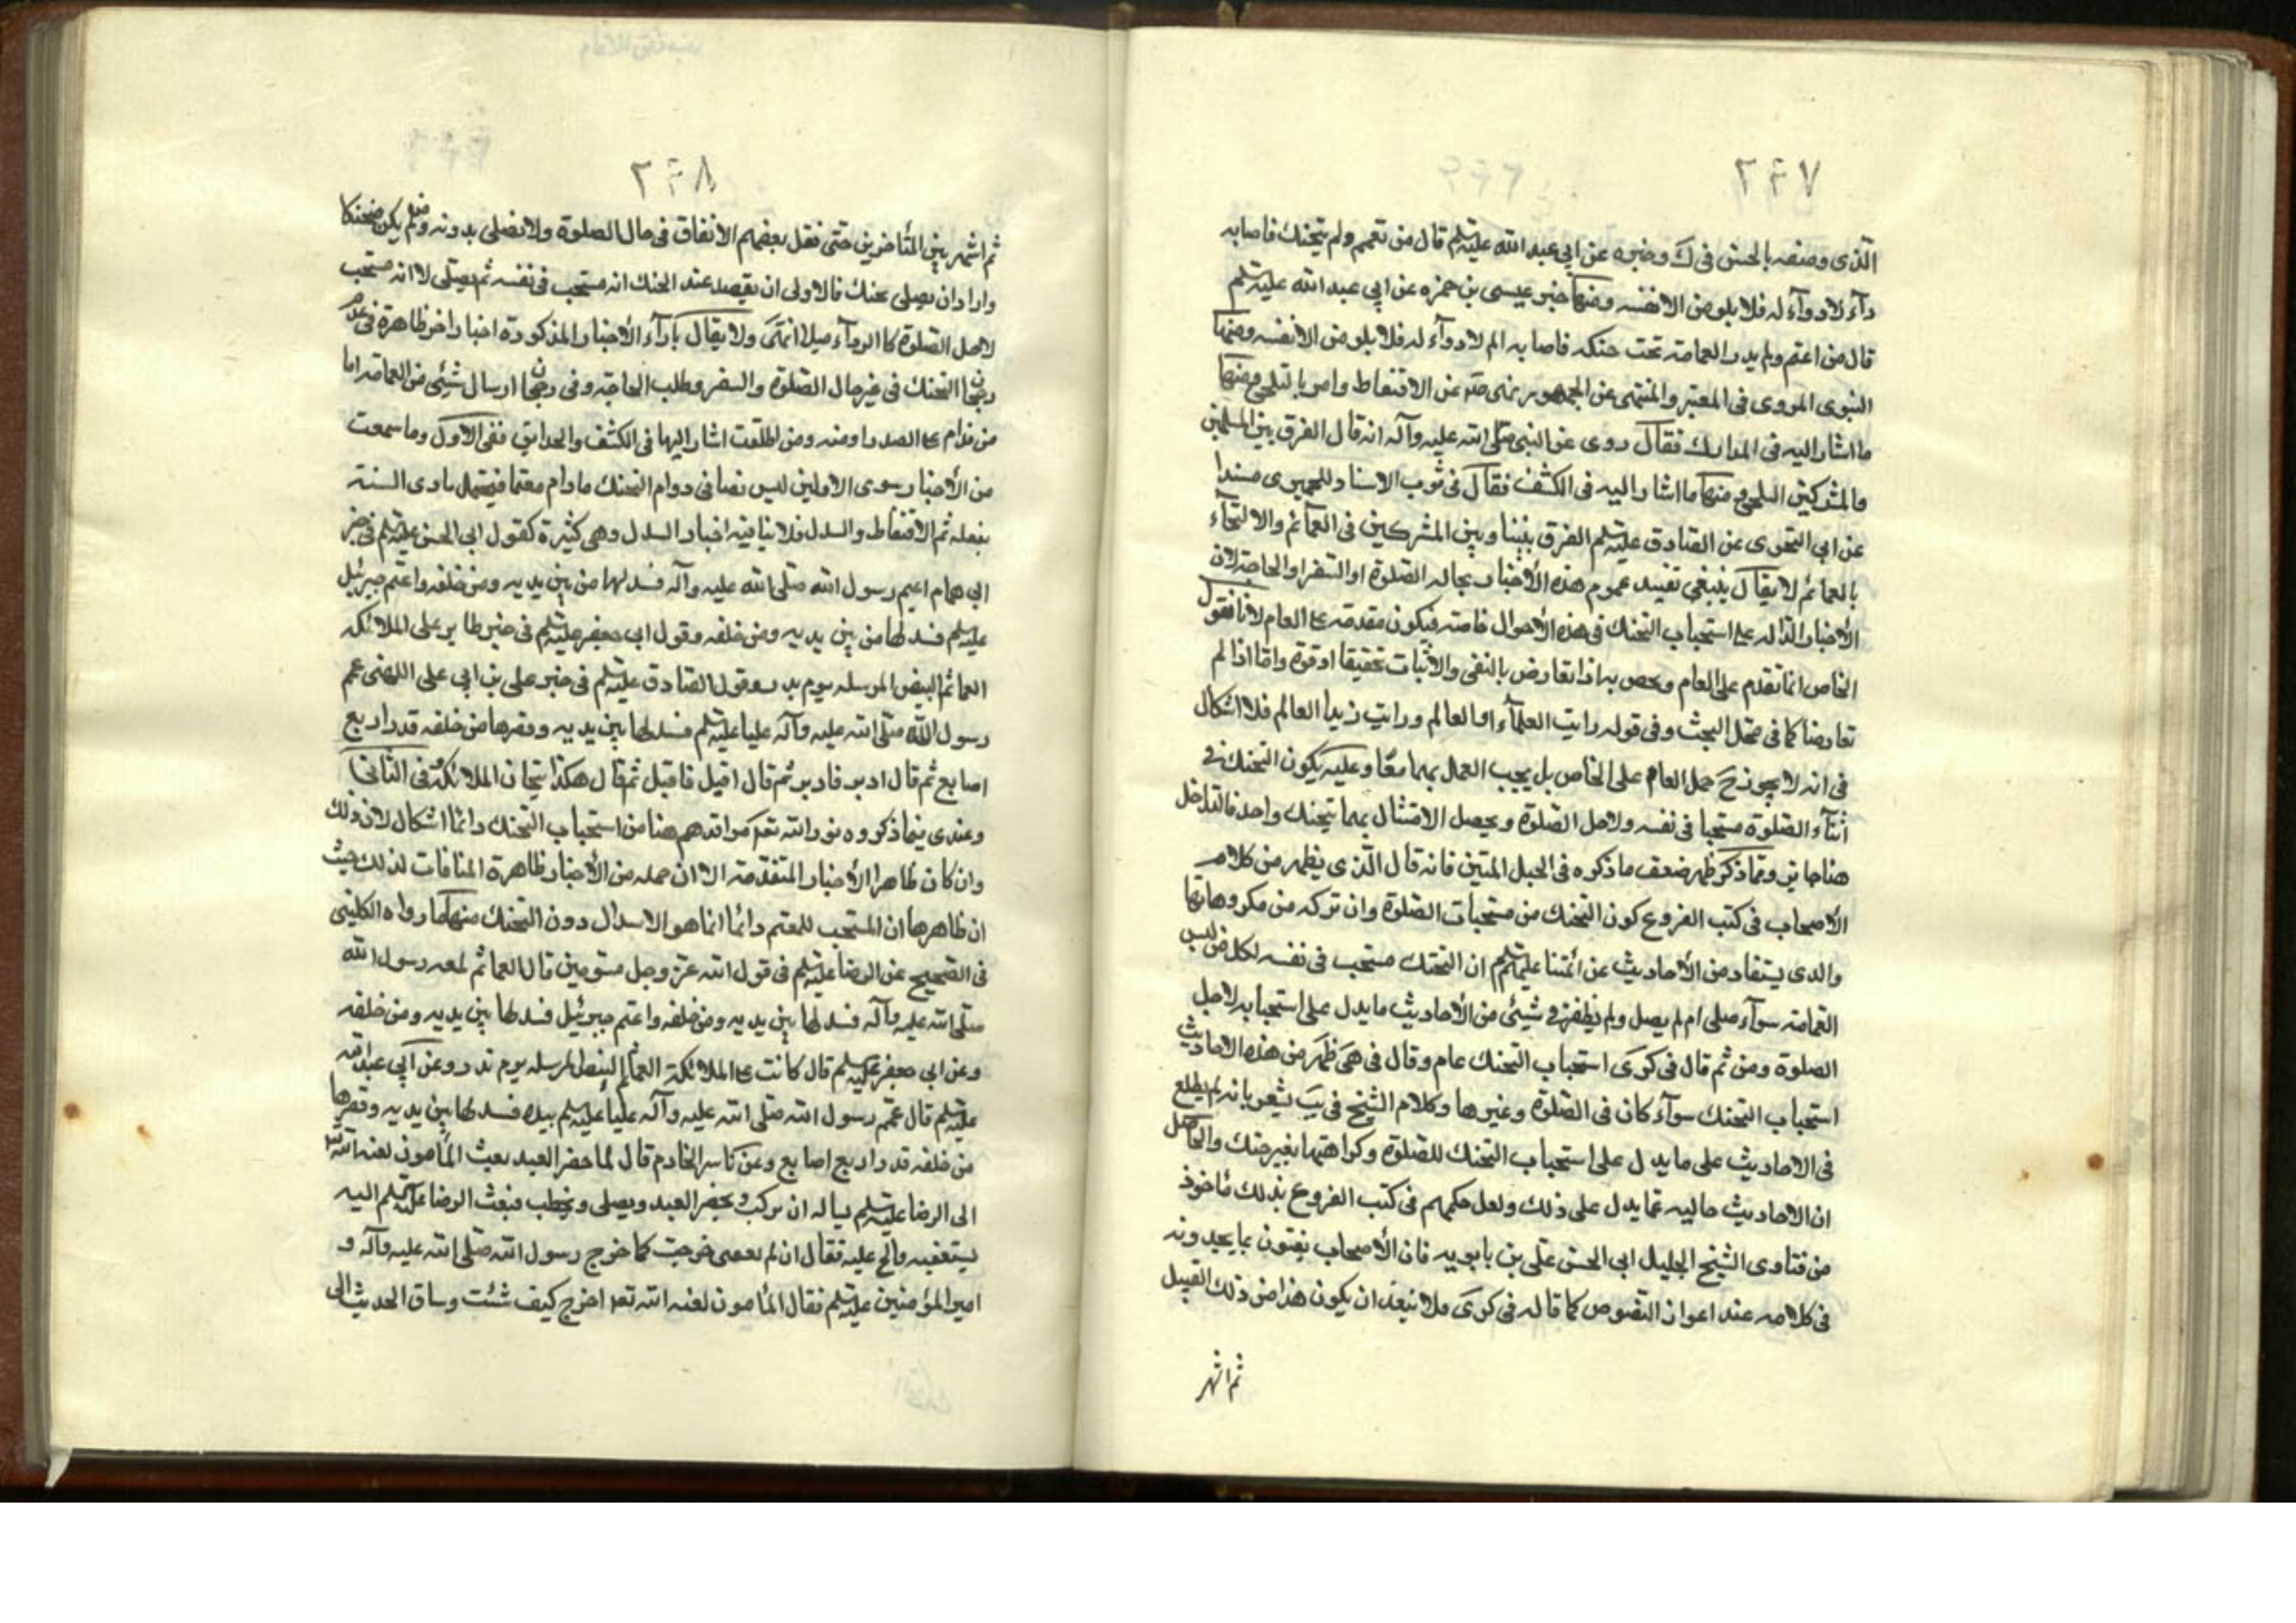 ٢۴٧
الذى وصفه بالحسن فى ك وخبره عن ابى عبد الله عليه السلم قال من تعمم ولم يتحنك فاصابه
دآء لا دوآء له فلا يلومن الا نفسه ومنها خبر عيسى بن حمزه عن ابى عبد الله عليه السلم
قال من اعتم ولم يدر العمامة تحت حنكه فاصابه الم لا دوآء له فلا يلومن الا نفسه ومنها
النبوى المروى فى المعتبر والمنتهى عن الجمهور نهى صه عن الاقتعاط وامر بالتلحى ومنها
ما اشار اليه فى المدارك فقال روى عن النبى صلى الله عليه وآله انه قال الفرق بين المسلمين
والمشركين التلحى ومنها ما اشار اليه فى الكشف فقال فى قرب الاسناد للحميرى مسندا
عن ابى البخترى عن الصادق عليه السلم الفرق بيننا وبين المشركين فى العمآئم والالتحآء
بالعمائم لا يقال ينبغى تقييد عموم هذه الأخبار بحالة الصلوة او السفر او الحاجة لان
الأخبار الدالة على استحباب التحنك فى هذه الأحوال خاصة فيكون مقدمة على العام لانا نقول
الخاص انما تقدم على العام ويخص به اذا تعارض بالنفى والاثبات تحقيقا او قوة واما اذا لم
تعارضا كما فى محل البحث وفى قوله رايت العلمآء او العالم ورايت زيدا العالم فلا اشكال
فى انه لا يجوز ح حمل العام على الخاص بل يجب العمل بهما معًا وعليه يكون التحنك فى
اثنآء الصلوة مستحبا فى نفسه ولاجل الصلوة ويحصل الامتثال بهما بتحنك واحد فالتداخل
هنا جايز ومما ذكر ظهر ضعف ما ذكره فى الحبل المتين فانه قال الذى يظهر من كلام
الأصحاب فى كتب الفروع كون التحنك من مستحبات الصلوة وان تركه من مكروهاتها
والذى يستفاد من الأحاديث عن ائمتنا عليهم السلم ان التحنك مستحب فى نفسه لكل من لبس
العمامة سوآء صلى ام لم يصل ولم نظفر فى شيئى من الأحاديث ما يدل على استحبابه لاجل
الصلوة ومن ثم قال فى كرى استحباب التحنك عام وقال فى هى ظهر من هذه الاحاديث
استحباب التحنك سوآء كان فى الصلوة وغيرها وكلام الشيخ فى يب يشعر بانه لم يطلع
فى الاحاديث على ما يدل على استحباب التحنك للصلوة وكراهتها بغير حنك والحاصل
ان الاحاديث خاليه عما يدل على ذلك ولعل حكمهم فى كتب الفروع بذلك مأخوذ
من فتاوى الشيخ الجليل ابى الحسن على بن بابويه فان الأصحاب يفتون بما يجدونه
فى كلامه عند اعواز النصوص كما قاله فى كرى فلا تبعد ان يكون هذا من ذلك القبيل
ثم اشهر
٢۴٨
ثم اشهر بين المتأخرين حتى نقل بعضهم الاتفاق فى حال الصلوة ولا نصلى بدونه ولم يكن متحنكا
واراد ان يصلى بحنك فالاولى ان يقصد عند الحنك انه مستحب فى نفسه ثم يصلى لا انه مستحب
لاجل الصلوة كالردآء ميلا انتهى ولا يقال بازآء الأخبار المذكورة اخبار اخر ظاهرة فى عدم
رجحان التحنك فى غير حال الصلوة والسفر وطلب الحاجة وفى رجحان ارسال شيئى من العمامة اما
من قدام على الصدر او منه ومن الخلف اشار اليها فى الكشف والحدايق ففى الاول وما سمعت
من الأخبار سوى الاولين ليس نصا فى دوام التحنك ما دام معتما فيحتمل تادى السنة
بفعله ثم الاقتعاط والسدل فلا ينافيه اخبار السدل وهى كثيرة كقول ابى الحسن عليه السلم فى خبر
ابى همام اعتم رسول الله صلى الله عليه وآله فسدلها من بين يديه ومن خلفه واعتم جبرئيل
عليه السلم فسدلها من بين يديه ومن خلفه وقول ابى جعفر عليه السلم فى خبر جابر على الملائكة
العمائم البيض المرسله يوم بدر وقول الصادق عليه السلم فى خبر على بن ابى على اللهبى عمم
رسول الله صلى الله عليه وآله عليا عليه السلم فسدلها بين يديه وقصرها من خلفه قدر اربع
اصابع ثم قال ادبر فادبر ثم قال اقبل فاقبل ثم قال هكذا تيجان الملائكة وفى الثانى
وعندى فيما ذكروه نور الله تعه مراقدهم هنا من استحباب التحنك دائما اشكال لان ذلك
وان كان ظاهر الأخبار المتقدمة الا ان جمله من الأخبار ظاهرة المنافات لذلك حيث
ان ظاهرها ان المستحب للمعتم دائما انما هو الاسدال دون التحنك منها ما رواه الكلينى
فى الصحيح عن الرضا عليه السلم فى قول الله عز وجل مسومين قال العمائم اعتم رسول الله
صلى الله عليه وآله فسدلها بين يديه ومن خلفه واعتم جبرئيل فسدلها بين يديه ومن خلفه
وعن ابى جعفر عليه السلم قال كانت على الملائكة العمائم البيض المرسله يوم بدر وعن ابى عبد الله
عليه السلم قال عمم رسول الله صلى الله عليه وآله عليا عليه السلم بيده فسدلها بين يديه وقصرها
من خلفه قدر اربع اصابع وعن ياسر الخادم قال لما حضر العيد بعث المأمون لعنه الله
الى الرضا عليه السلم يساله ان يركب ويحضر العيد ويصلى ويخطب فبعث الرضا عليه السلم اليه
يستعفيه والح عليه فقال ان لم تعفنى خرجت كما خرج رسول الله صلى الله عليه وآله و
امير المؤمنين عليه السلم فقال المأمون لعنه الله تعه اخرج كيف شئت وساق الحديث الى